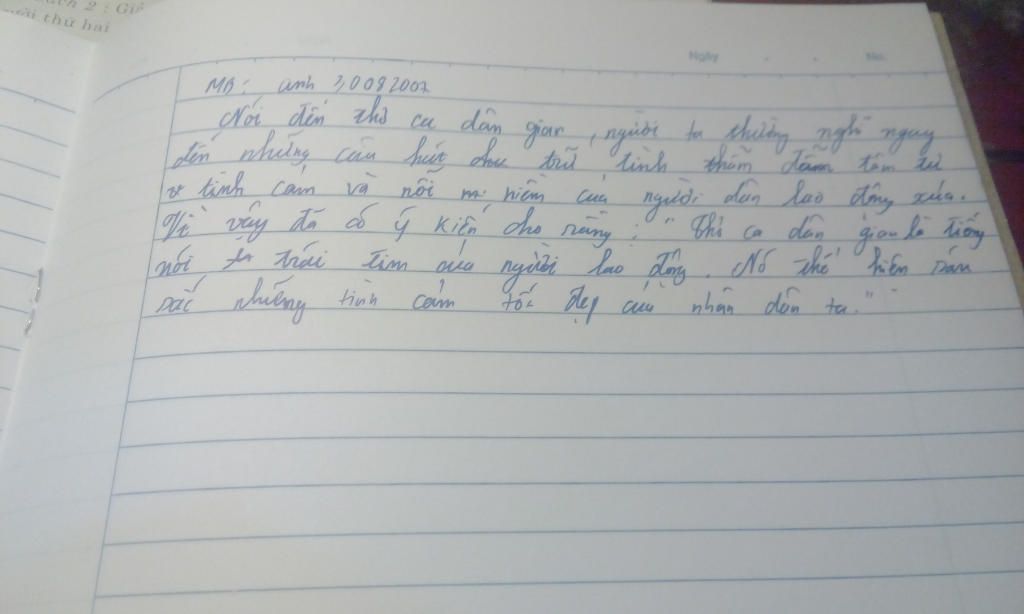 ách 2 : Giả
ười thứ hai
Ngày . . No.
MB: anh 30082007
Nói đến thơ ca dân gian, người ta thường nghĩ ngay
đến những câu hát trữ tình thấm đẫm tâm tư
tình cảm và nỗi niềm của người dân lao động xưa.
Vì vậy đã có ý kiến cho rằng: "Thơ ca dân gian là tiếng
nói trái tim của người lao động. Nó thể hiện sâu
sắc những tình cảm tốt đẹp của nhân dân ta."